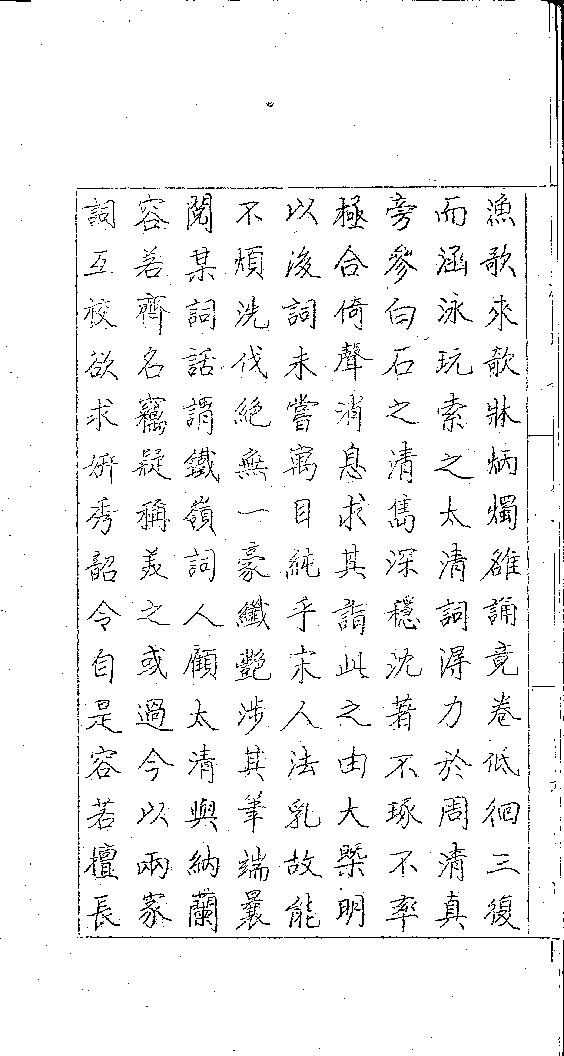 漁歌來歌牀炳燭雒誦竟卷低徊三復
而涵泳玩索之太清詞得力於周清真
旁參白石之清雋深穩沈著不琢不率
極合倚聲消息求其詣此之由大槩明
以後詞未嘗寓目純乎宋人法乳故能
不煩洗伐絕無一豪纖艷涉其筆端曩
閱某詞話謂鐵嶺詞人顧太清與納蘭
容若齊名竊疑稱美之或過今以兩家
詞互校欲求妍秀韶令自是容若擅長